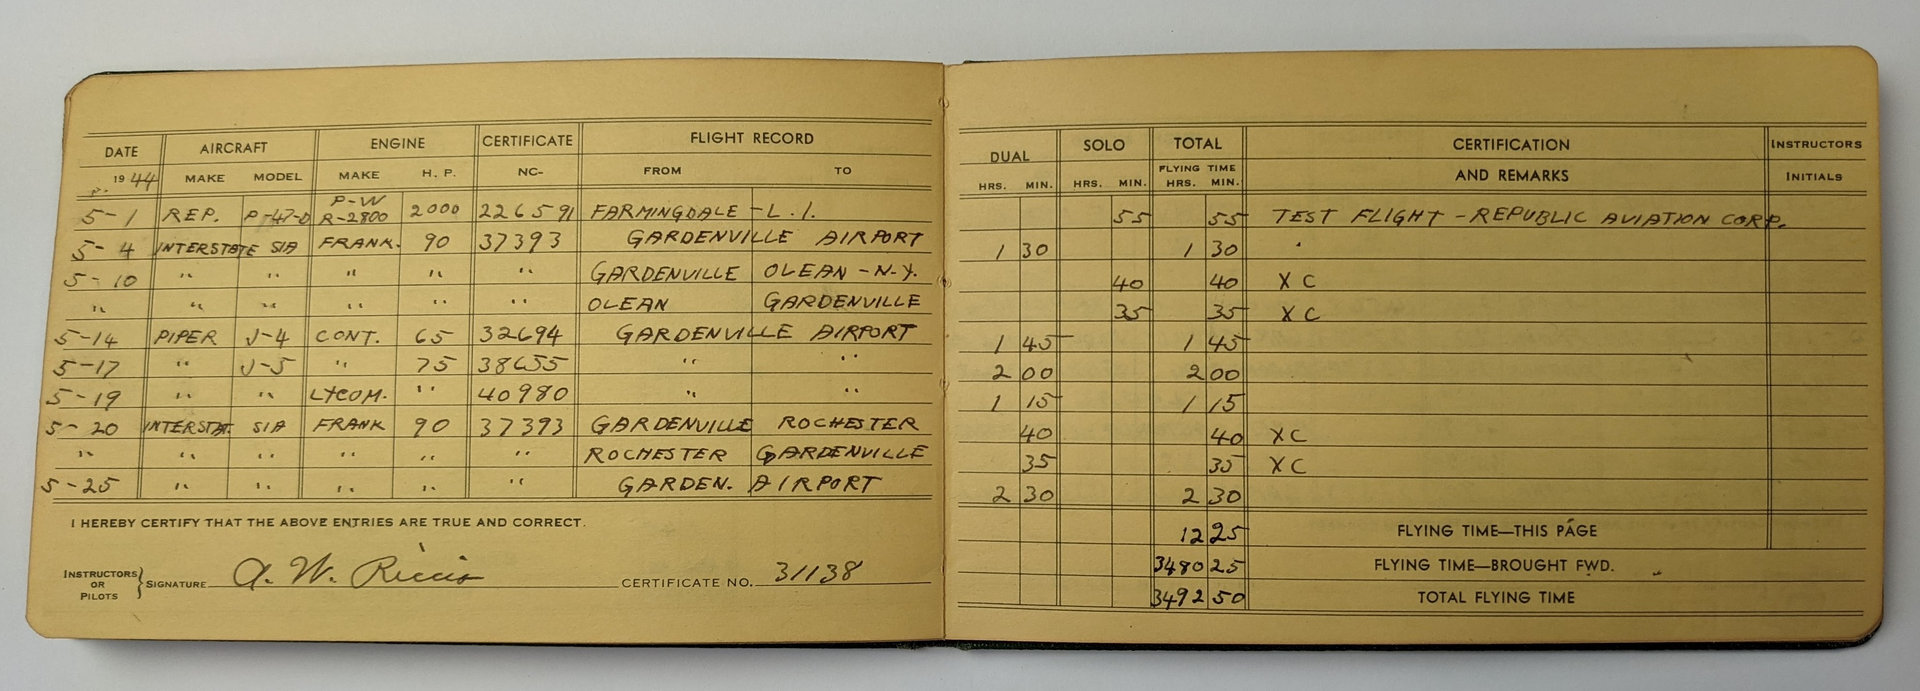 DATE AIRCRAFT ENGINE CERTIFICATE FLIGHT RECORD
1944 MAKE MODEL MAKE H. P. NC- FROM TO
5-1 REP. P-47-D P-W R-2800 2000 226591 FARMINGDALE - L. I.
5-4 INTERSTATE S1A FRANK. 90 37393 GARDENVILLE AIRPORT
5-10 " " " " " GARDENVILLE OLEAN - N.Y.
" " " " " " OLEAN GARDENVILLE
5-14 PIPER J-4 CONT. 65 32694 GARDENVILLE AIRPORT
5-17 " J-5 " 75 38655 " "
5-19 " " LYCOM. " 40980 " "
5-20 INTERSTAT. S1A FRANK 90 37393 GARDENVILLE ROCHESTER
" " " " " " ROCHESTER GARDENVILLE
5-25 " " " " " GARDEN. AIRPORT
I HEREBY CERTIFY THAT THE ABOVE ENTRIES ARE TRUE AND CORRECT.
INSTRUCTORS OR PILOTS } SIGNATURE A. W. Riccio CERTIFICATE NO. 31138
DUAL SOLO TOTAL CERTIFICATION INSTRUCTORS
FLYING TIME AND REMARKS INITIALS
HRS. MIN. HRS. MIN. HRS. MIN.
55 55 TEST FLIGHT - REPUBLIC AVIATION CORP.
1 30 1 30
40 40 X C
35 35 X C
1 45 1 45
2 00 2 00
1 15 1 15
40 40 X C
35 35 X C
2 30 2 30
12 25 FLYING TIME—THIS PAGE
3480 25 FLYING TIME—BROUGHT FWD.
3492 50 TOTAL FLYING TIME